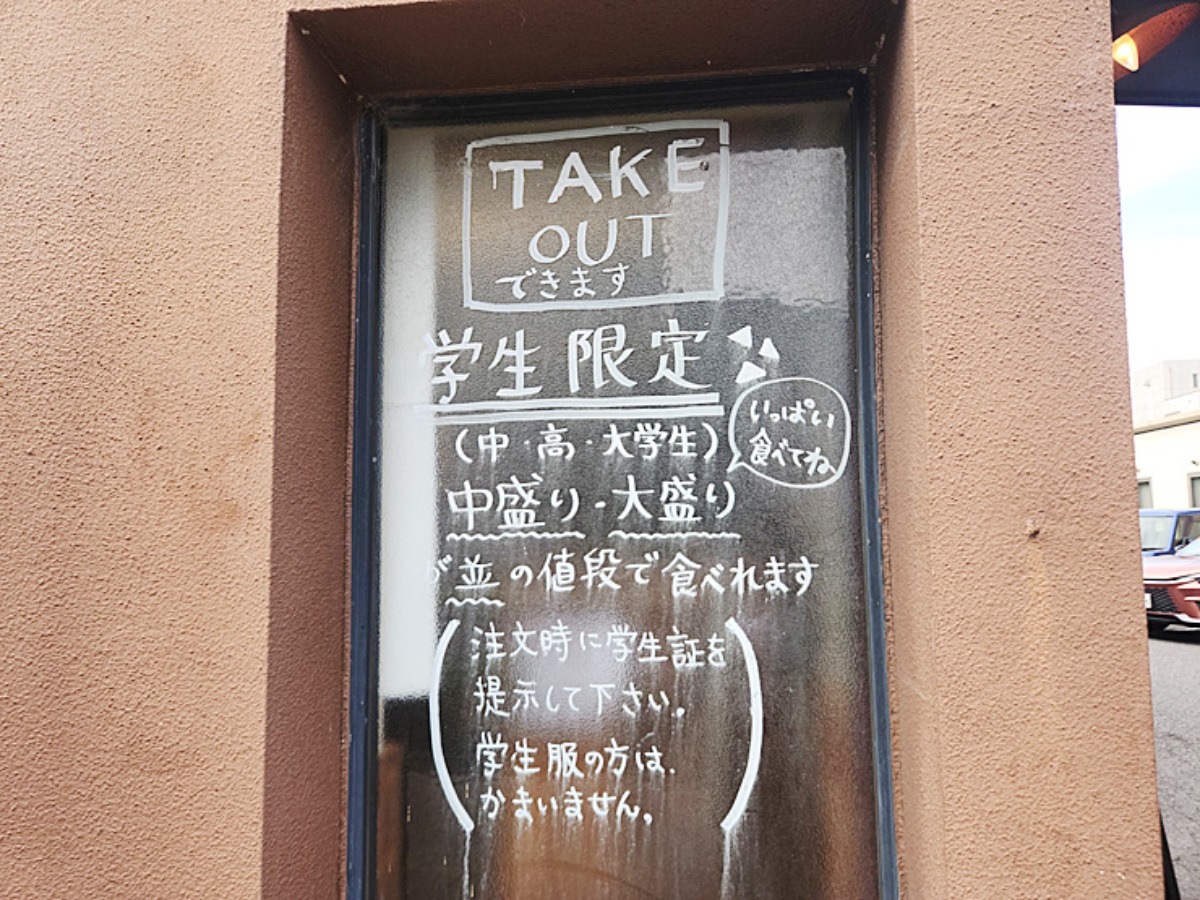 TAKE
OUT
できます
学生限定
(中・高・大学生)
いっぱい
食べてね
中盛り・大盛り
が並の値段で食べれます
注文時に学生証を
提示して下さい。
学生服の方は、
かまいません。